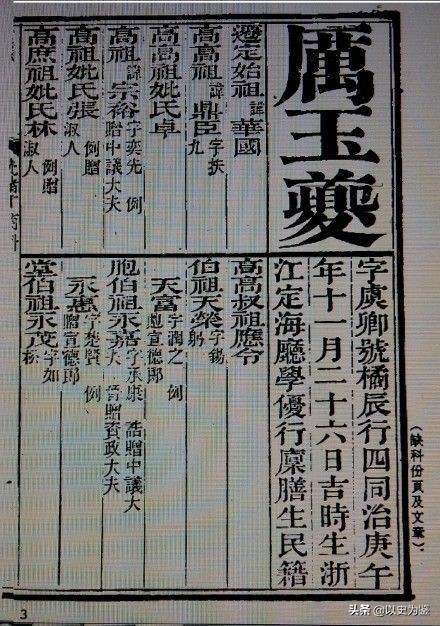 厲玉夔
字虞卿號橘辰行四同治庚午
年十一月二十六日吉時生浙
江定海廳學優行廩膳生民籍
遷定始祖諱華國
高高祖諱鼎臣字扶九
高高祖妣氏卓
高祖諱宗裕字奕光例贈中議大夫
高祖妣氏張例贈淑人
高庶祖妣氏林例贈淑人
高高叔祖應令
伯祖天榮字錫躬
天富字潤之例宣德郎
胞伯祖永字承康誥贈中議大夫晉贈資政大夫
永惠字楚賢例贈宣德郎
堂伯祖永茂字如松
（缺科份頁及文章）
3
头条 @以史为鉴